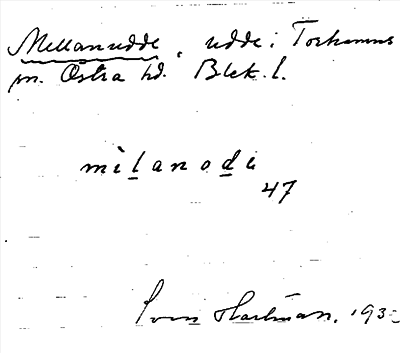 Mellanudde, udde i Torhamns
sn. Östra hd. Blek. l.
mìlanodi
47
Sven Hartman, 193